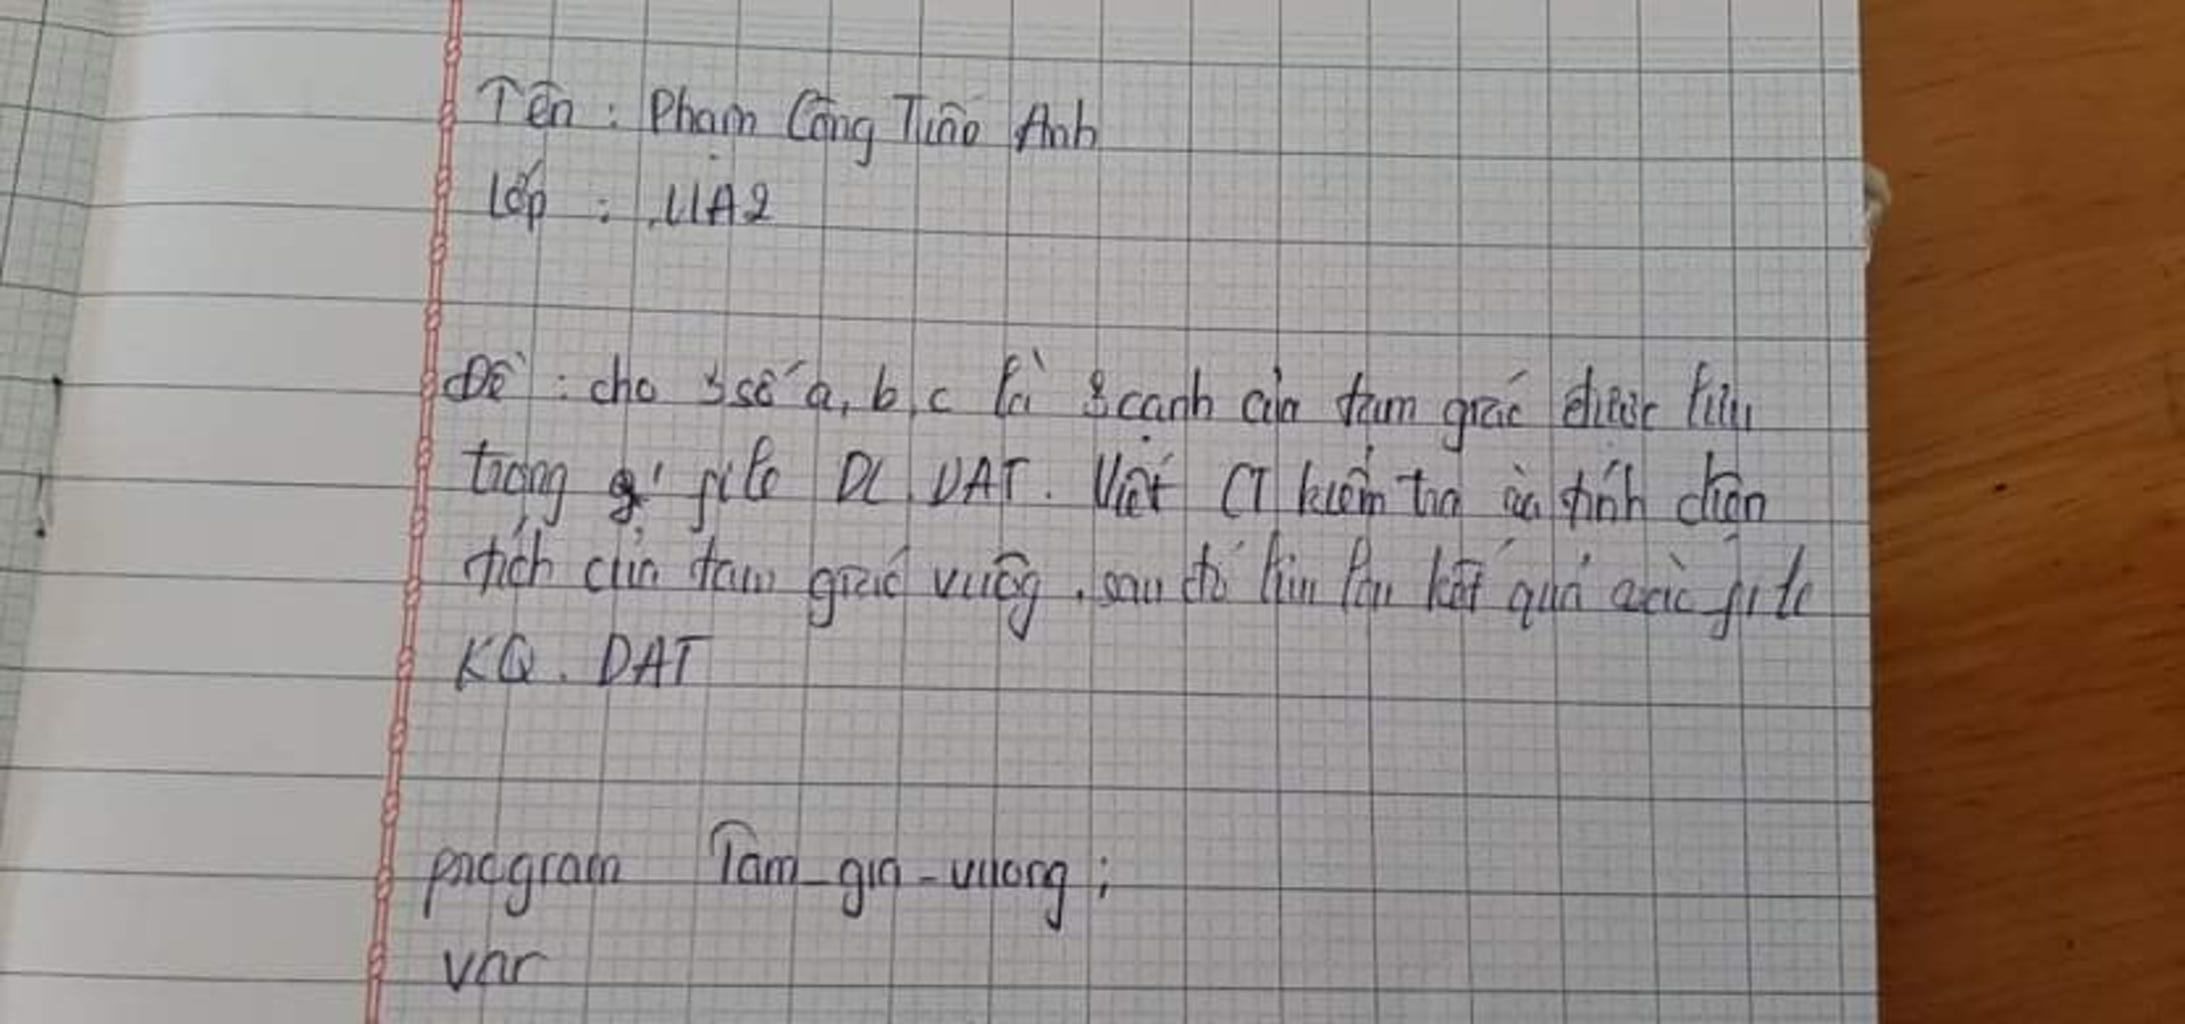 Tên : Phạm Công Tuấn Anh
Lớp : 11A2
Đề : cho 3 số a, b, c là 3 cạnh của tam giác được lưu
trong file DL DAT. Viết CT kiểm tra và tính diện
tích của tam giác vuông. sau đó lưu lại kết quả vào file
KQ. DAT
program Tam_gia_vuong ;
var